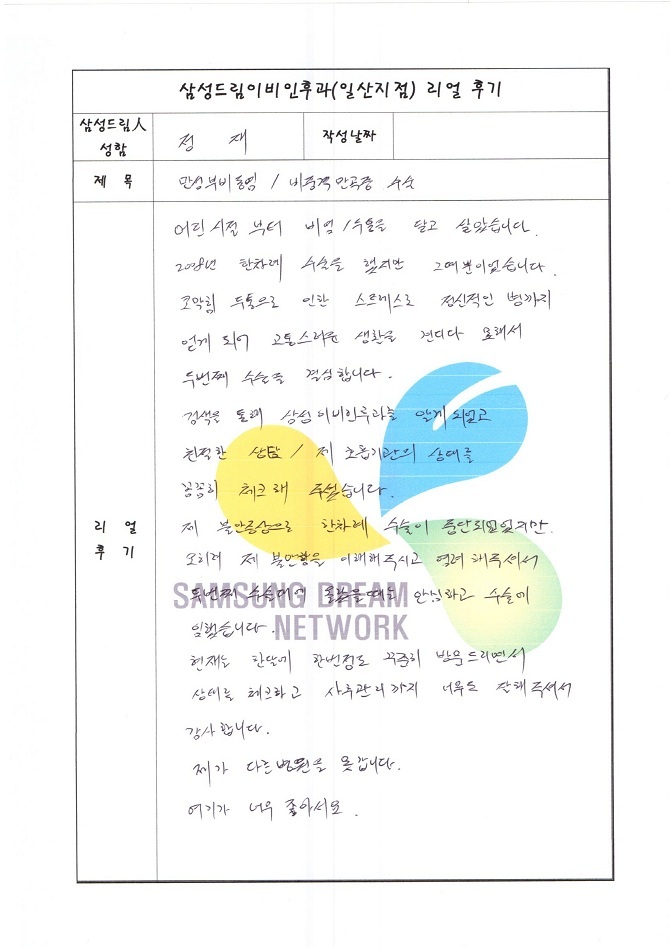 삼성드림이비인후과(일산지점) 리얼 후기
삼성드림人
성함
정 재
작성날짜
제 목
만성부비동염 / 비중격만곡증 수술
리 얼
후 기
어린시절 부터 비염/두통을 달고 살았습니다.
2008년 한차례 수술을 했지만 그때뿐이었습니다.
코막힘 두통으로 인한 스트레스로 정신적인 병까지
얻게 되어 고통스러운 생활을 견디다 못해서
두번째 수술을 결심합니다.
검색을 통해 삼성이비인후과를 알게되었고
친절한 상담 / 제 호흡기관의 상태를
꼼꼼히 체크해 주셨습니다.
제 불안증상으로 한차례 수술이 중단되었었지만.
오히려 제 불안함을 이해해주시고 염려해주셔서
두번째 수술대에 올랐을때도 안심하고 수술에
임했습니다.
현재는 한달에 한번정도 꾸준히 방문드리면서
상태를 체크하고 사후관리까지 너무도 잘해주셔서
감사합니다.
제가 다른병원을 못갑니다.
여기가 너무 좋아서요.
SAMSUNG DREAM
NETWORK